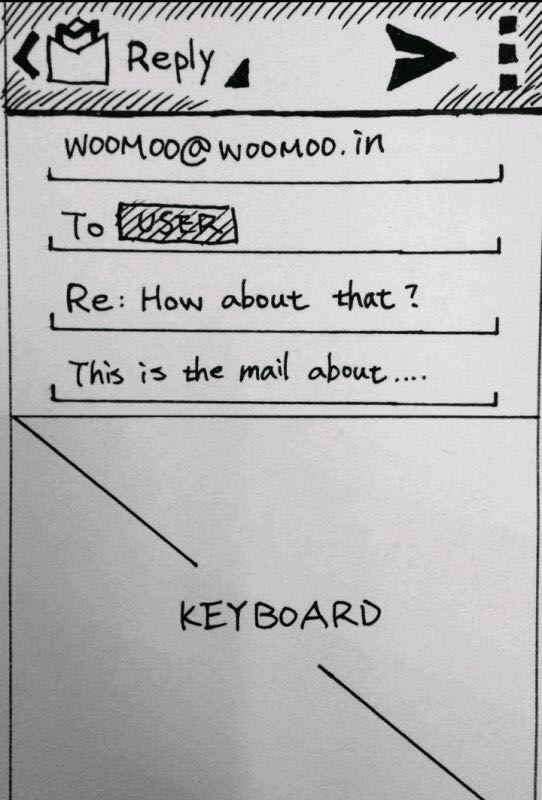 Reply
WOOMOO@WOOMOO.in
To USER
Re: How about that?
This is the mail about....
KEYBOARD